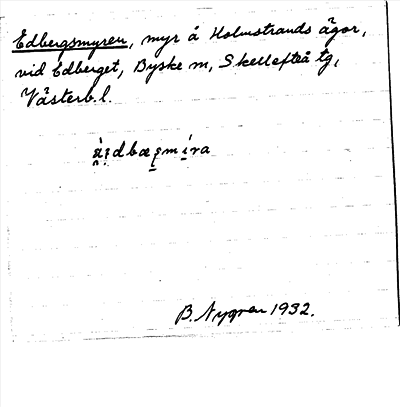 Edbergsmyren, myr å Holmstrands ägor,
vid Edberget, Byske m, Skellefteå tg,
Västerb. l.
B. Nygren 1932.